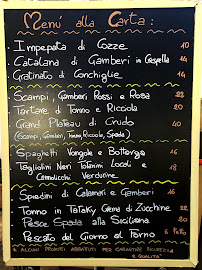 Menú alla Carta:
Impepata di Cozze 10
Catalana di Gamberi in Crespella 16
Gratinato di Conchiglie 14
Scampi, Gamberi Rossi e Rosa 18
Tartare di Tonno e Riccola 20
Grand Plateau di Crudo 40
(Scampi, Gamberi, Tonno, Riccola, Spada)
Spaghetti Vongole e Bottarga 16
Tagliolini Neri Totanini Locali e 18
Canolicchi Verdurine
Spiedini di Calamari e Gamberi 16
Tonno in Tataky Crema di Zucchine 22
Pesce Spada alla Siciliana 20
Pescato del Giorno al Forno 6 l'etto
* Alcuni prodotti abbattuti per garantire sicurezza
e qualità